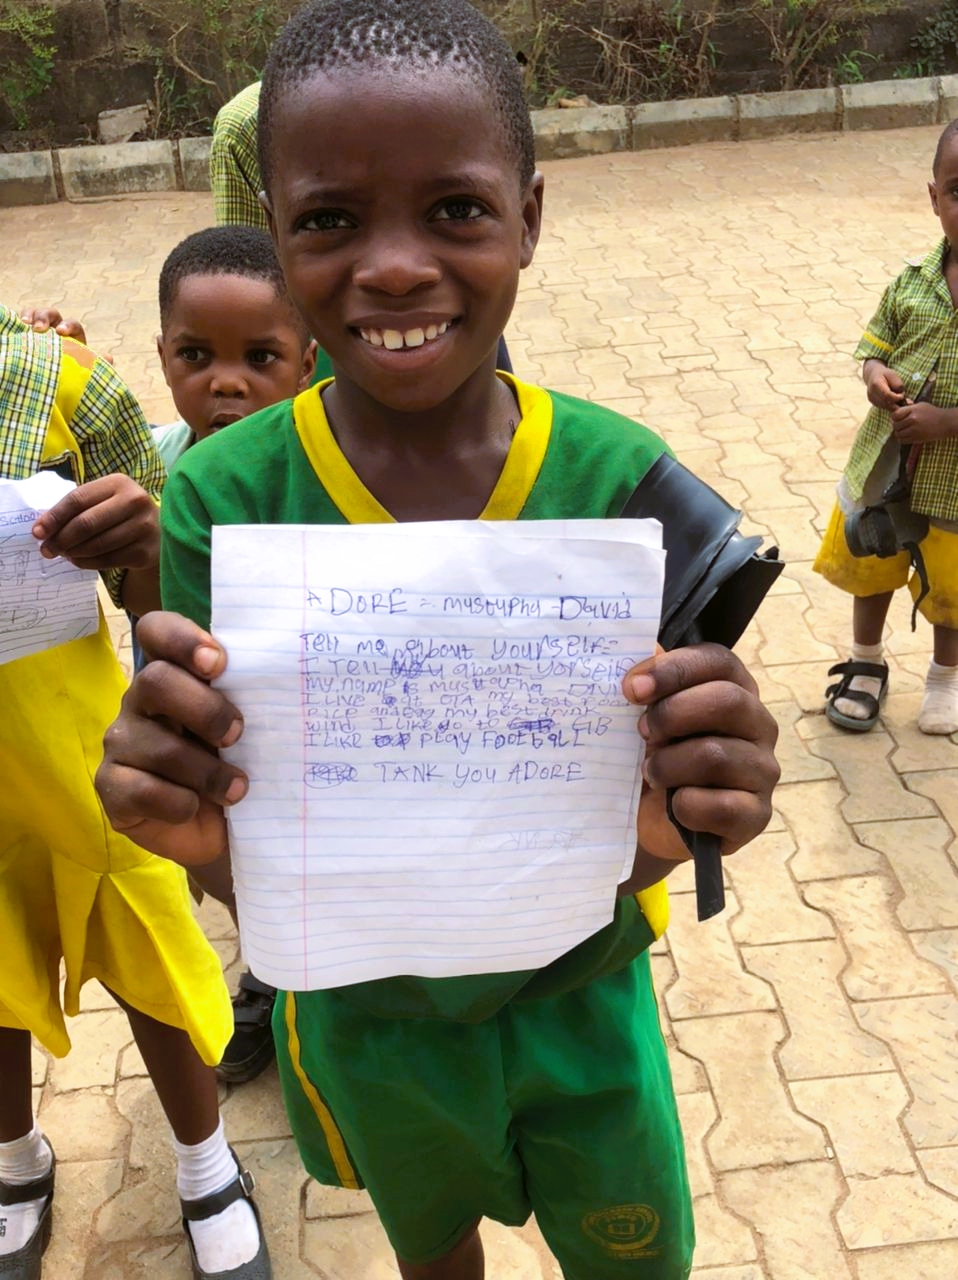 ADORE = mustupha - David
Tell me about yourself=
I Tell about yorself
my name is mustupha DAVID
I LIVE OTA my best Foo
Rice my best Drink
wind I like go to
I LIKE PLAY FOOTBALL
TANK YOU ADORE
School